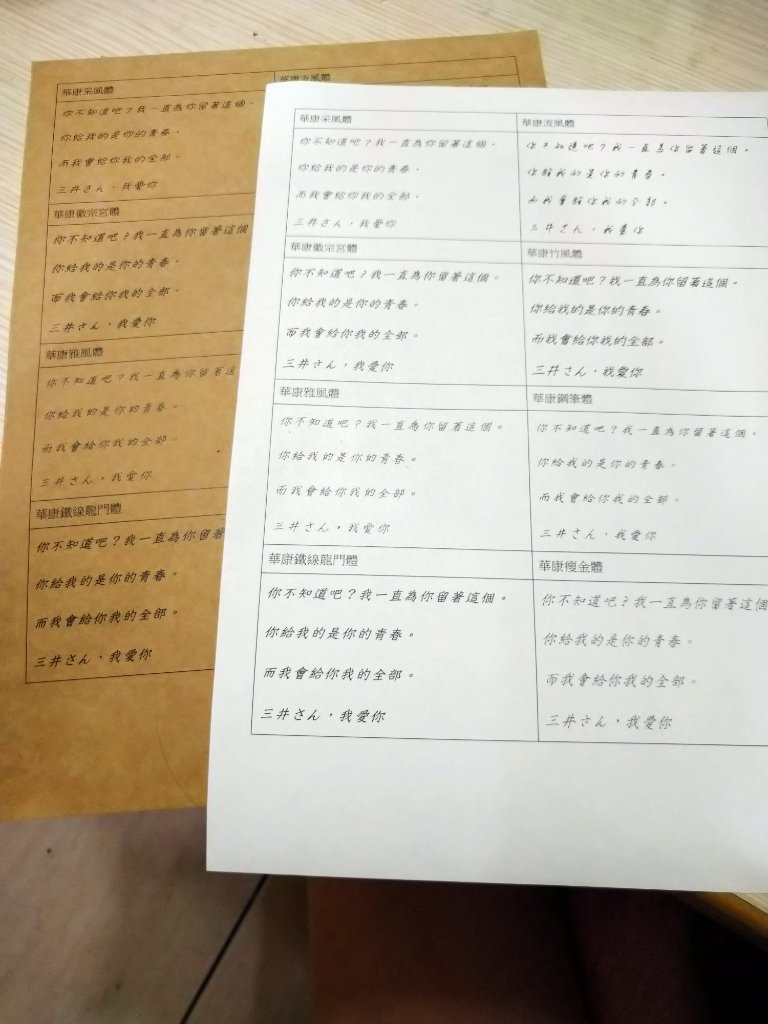 華康采風體
華康流風體
你不知道吧？我一直為你留著這個。
你給我的是你的青春。
而我會給你我的全部。
三井さん，我愛你
華康徽宗宮體
你不知道吧？我一直為你留著這個
你給我的是你的青春。
而我會給你我的全部。
三井さん，我愛你
華康雅風體
你不知道吧？我一直為你留著這
你給我的是你的青春。
而我會給你我的全部。
三井さん，我愛你
華康鐵線龍門體
你不知道吧？我一直為你留著
你給我的是你的青春。
而我會給你我的全部。
三井さん，我愛你
華康采風體
你不知道吧？我一直為你留著這個。
你給我的是你的青春。
而我會給你我的全部。
三井さん，我愛你
華康流風體
你不知道吧？我一直為你留著這個。
你給我的是你的青春。
而我會給你我的全部。
三井さん，我愛你
華康徽宗宮體
你不知道吧？我一直為你留著這個。
你給我的是你的青春。
而我會給你我的全部。
三井さん，我愛你
華康竹風體
你不知道吧？我一直為你留著這個。
你給我的是你的青春。
而我會給你我的全部。
三井さん，我愛你
華康雅風體
你不知道吧？我一直為你留著這個。
你給我的是你的青春。
而我會給你我的全部。
三井さん，我愛你
華康鋼筆體
你不知道吧？我一直為你留著這個。
你給我的是你的青春。
而我會給你我的全部。
三井さん，我愛你
華康鐵線龍門體
你不知道吧？我一直為你留著這個。
你給我的是你的青春。
而我會給你我的全部。
三井さん，我愛你
華康瘦金體
你不知道吧？我一直為你留著這個
你給我的是你的青春。
而我會給你我的全部。
三井さん，我愛你